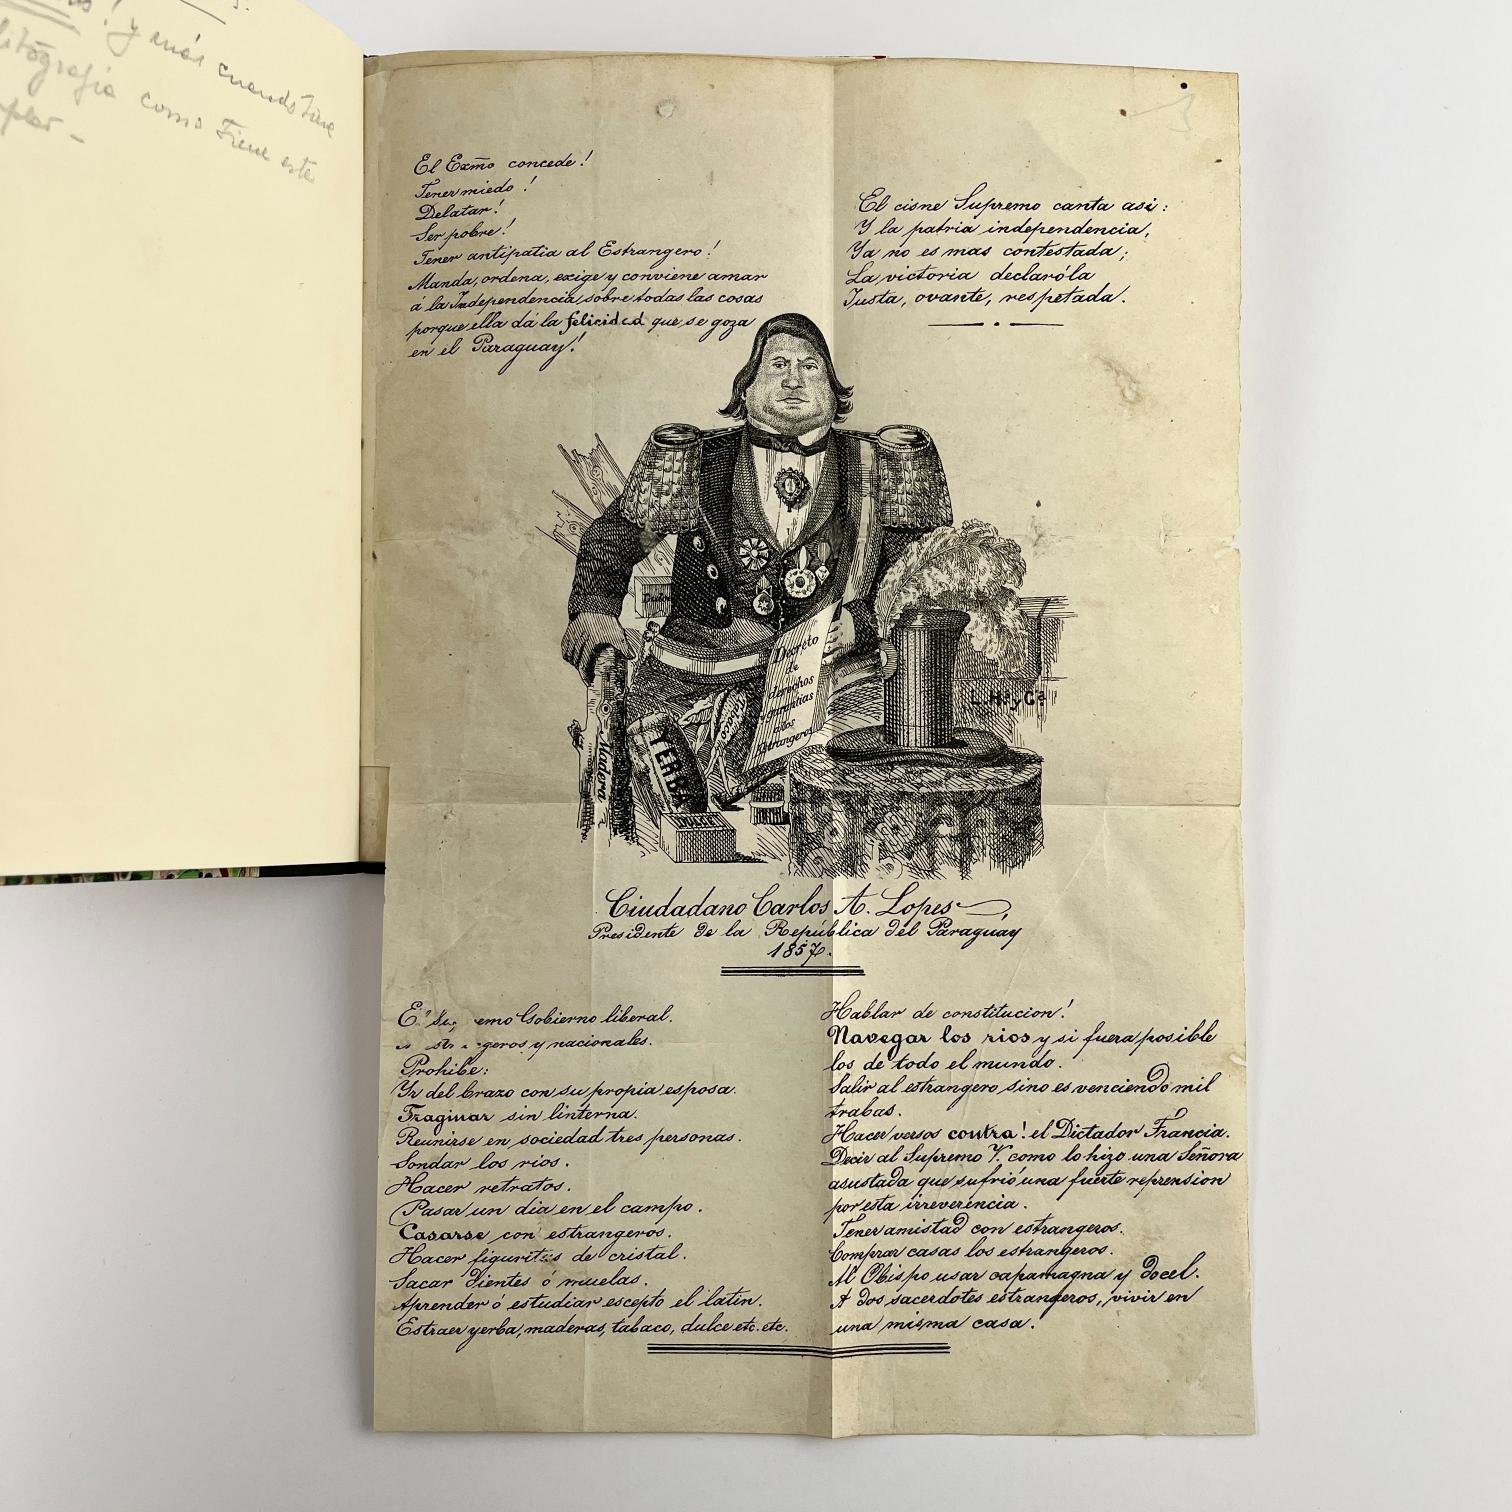 y más cuando tiene
litografia como Tiene este
El Exmo concede!
Tener miedo!
Delatar!
Ser pobre!
Tener antipatia al Estrangero!
Manda, ordena, exige y conviene amar
á la Independencia, sobre todas las cosas
porque ella dá la felicidad que se goza
en el Paraguay!
El cisne Supremo canta asi:
Y la patria independencia,
Ya no es mas contestada;
La victoria declaróla
Justa, ovante, respetada.
Decreto
de
derechos
y garantias
a los
Estrangeros
L. Hs y Ca
Madera
YERBA
TABACO
DULCE
Ciudadano Carlos A. Lopes
Presidente de la República del Paraguay
1857.
emo Gobierno liberal.
geros y nacionales.
Prohibe:
Yr del brazo con su propia esposa.
Traginar sin linterna.
Reunirse en sociedad tres personas.
Sondar los rios.
Hacer retratos.
Pasar un dia en el campo.
Casarse con estrangeros.
Hacer figuritas de cristal.
Sacar dientes ó muelas.
Aprender ó estudiar escepto el latin.
Estraer yerba, maderas, tabaco, dulce etc. etc.
Hablar de constitucion!
Navegar los rios y si fuera posible
los de todo el mundo.
Salir al estrangero sino es venciendo mil
trabas.
Hacer versos contra! el Dictador Francia.
Decir al Supremo V. como lo hizo una Señora
asustada que sufrió una fuerte reprension
por esta irreverencia.
Tener amistad con estrangeros.
Comprar casas los estrangeros.
Al Obispo usar capamagna y docel.
A dos sacerdotes estrangeros, vivir en
una misma casa.